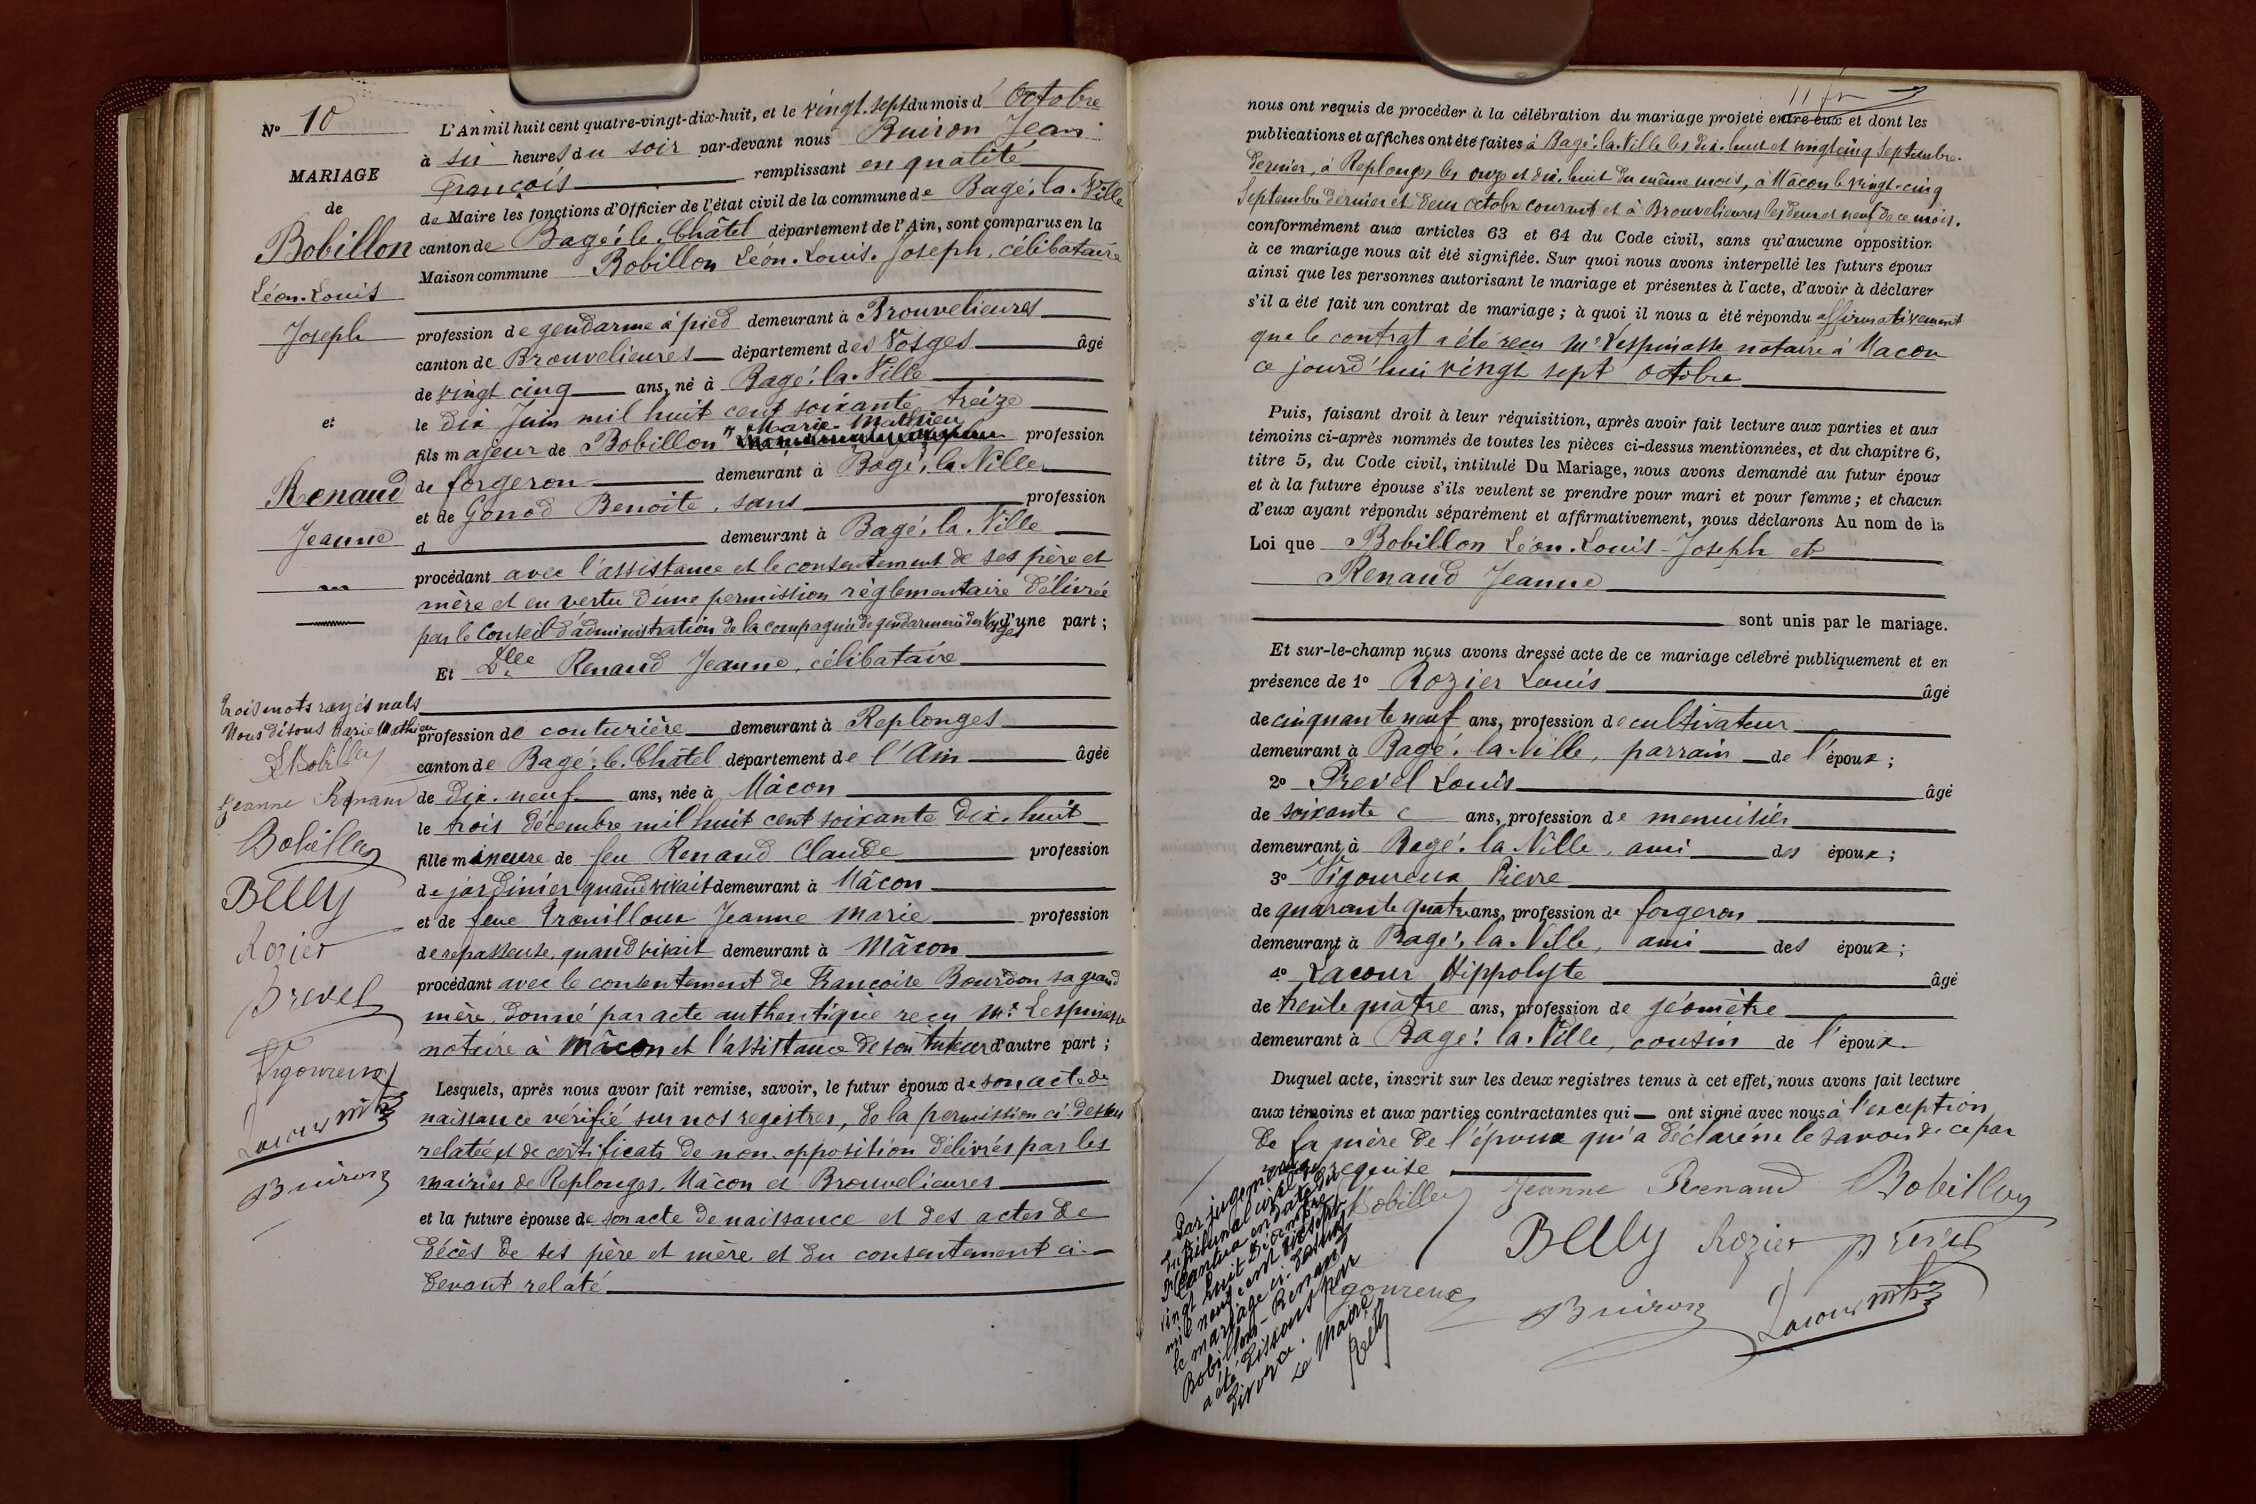 Nº 10
MARIAGE
de
Bobillon
Léon-Louis
Joseph
et
Renaud
Jeanne
L'An mil huit cent quatre-vingt-dix-huit, et le vingt-sept du mois d'Octobre
à six heures du soir par-devant nous Buiron Jean
François remplissant en qualité
de Maire les fonctions d'Officier de l'état civil de la commune de Bagé-la-Ville
canton de Bagé-le-Châtel département de l'Ain, sont comparus en la
Maison commune Bobillon Léon-Louis-Joseph, célibataire
profession de gendarme à pied demeurant à Brouvelieures
canton de Brouvelieures département des Vosges âgé
de vingt cinq ans, né à Bagé-la-Ville
le dix Juin mil huit cent soixante treize
Marie Mathieu
fils majeur de Bobillon profession
de forgeron demeurant à Bagé-la-Ville
et de Gonod Benoite, sans profession
d demeurant à Bagé-la-Ville
procédant avec l'assistance et le consentement de ses père et
mère et en vertu d'une permission règlementaire délivrée
par le Conseil d'administration de la compagnie de gendarmerie des Vosges d'une part;
Et Dlle Renaud Jeanne, célibataire
profession de couturière demeurant à Replonges
canton de Bagé-le-Châtel département de l'Ain âgée
de dix-neuf ans, née à Mâcon
le trois décembre mil huit cent soixante dix-huit
fille mineure de feu Renaud Claude profession
de jardinier quand vivait demeurant à Mâcon
et de feue Trouilloux Jeanne Marie profession
de repasseuse, quand vivait demeurant à Mâcon
procédant avec le consentement de Françoise Bourdon sa grand
mère, donné par acte authentique reçu Mr. Lespinasse
notaire à Mâcon et l'assistance de son tuteur d'autre part;
Lesquels, après nous avoir fait remise, savoir, le futur époux de son acte de
naissance vérifié sur nos registres, de la permission ci-dessus
relatée et de certificats de non-opposition délivrés par les
mairies de Replonges, Mâcon et Brouvelieures
et la future épouse de son acte de naissance et des actes de
décès de ses père et mère et du consentement ci-
devant relaté
trois mots rayés nuls
Nous disons Marie Mathieu
LBobillon
Jeanne Renaud
Bobillon
Belly
Rozier
Prevel
Vigoureux
Lacour
Buiron
11 fr
nous ont requis de procéder à la célébration du mariage projeté entre eux et dont les
publications et affiches ont été faites à Bagé-la-Ville les dix-huit et vingt cinq Septembre
dernier, à Replonges les onze et dix-huit du même mois, à Mâcon le vingt-cinq
Septembre dernier et deux octobre courant et à Brouvelieures les deux et neuf de ce mois.
conformément aux articles 63 et 64 du Code civil, sans qu'aucune opposition
à ce mariage nous ait été signifiée. Sur quoi nous avons interpellé les futurs époux
ainsi que les personnes autorisant le mariage et présentes à l'acte, d'avoir à déclarer
s'il a été fait un contrat de mariage; à quoi il nous a été répondu affirmativement
que le contrat a été reçu Mr Lespinasse notaire à Macon
ce jourd'hui vingt sept octobre
Puis, faisant droit à leur réquisition, après avoir fait lecture aux parties et aux
témoins ci-après nommés de toutes les pièces ci-dessus mentionnées, et du chapitre 6,
titre 5, du Code civil, intitulé Du Mariage, nous avons demandé au futur époux
et à la future épouse s'ils veulent se prendre pour mari et pour femme; et chacun
d'eux ayant répondu séparément et affirmativement, nous déclarons Au nom de la
Loi que Bobillon Léon-Louis-Joseph et
Renaud Jeanne
sont unis par le mariage.
Et sur-le-champ nous avons dressé acte de ce mariage célébré publiquement et en
présence de 1º Rozier Louis âgé
de cinquante neuf ans, profession de cultivateur
demeurant à Bagé-la-Ville, parrain de l'époux;
2º Prevel Louis âgé
de soixante ans, profession de menuisier
demeurant à Bagé-la-Ville, ami des époux;
3º Vigoureux Pierre
de quarante quatre ans, profession de forgeron
demeurant à Bagé-la-Ville, ami des époux;
4º Lacour Hippolyte âgé
de trente quatre ans, profession de géomètre
demeurant à Bagé-la-Ville, cousin de l'époux.
Duquel acte, inscrit sur les deux registres tenus à cet effet, nous avons fait lecture
aux témoins et aux parties contractantes qui ont signé avec nous à l'exception
de la mère de l'époux qui a déclaré ne le savoir de ce par
nous requise
Bobillon Jeanne Renaud Bobillon
Belly Rozier Prevel
Vigoureux Buiron Lacour
Par jugement
du tribunal civil de
Nantua en date du
vingt huit Décembre
mil neuf cent dix sept
le mariage ci-dessus
Bobillon-Renaud
a été dissous par
divorce.
Le Maire
Belly